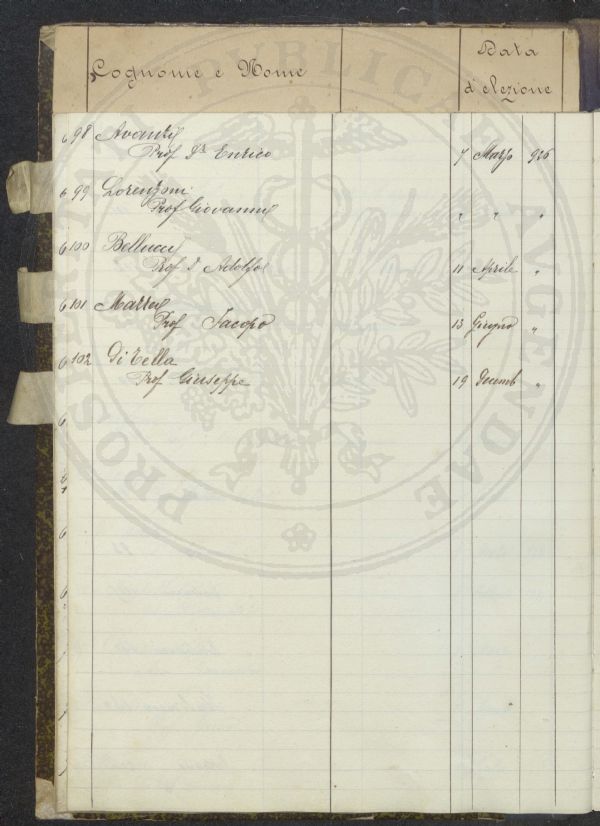 Cognome e Nome
Data
d'elezione
98 Avanzi
Prof Dr Enrico 7 Marzo 926
99 Lorenzoni
Prof Giovanni " " "
100 Bellucci
Prof D. Adolfo 11 Aprile "
101
Prof Jacopo 13 Giugno "
102 Di Tella
Prof Giuseppe 19 Decemb "
PROSPERITATI PUBLICAE AVGENDAE